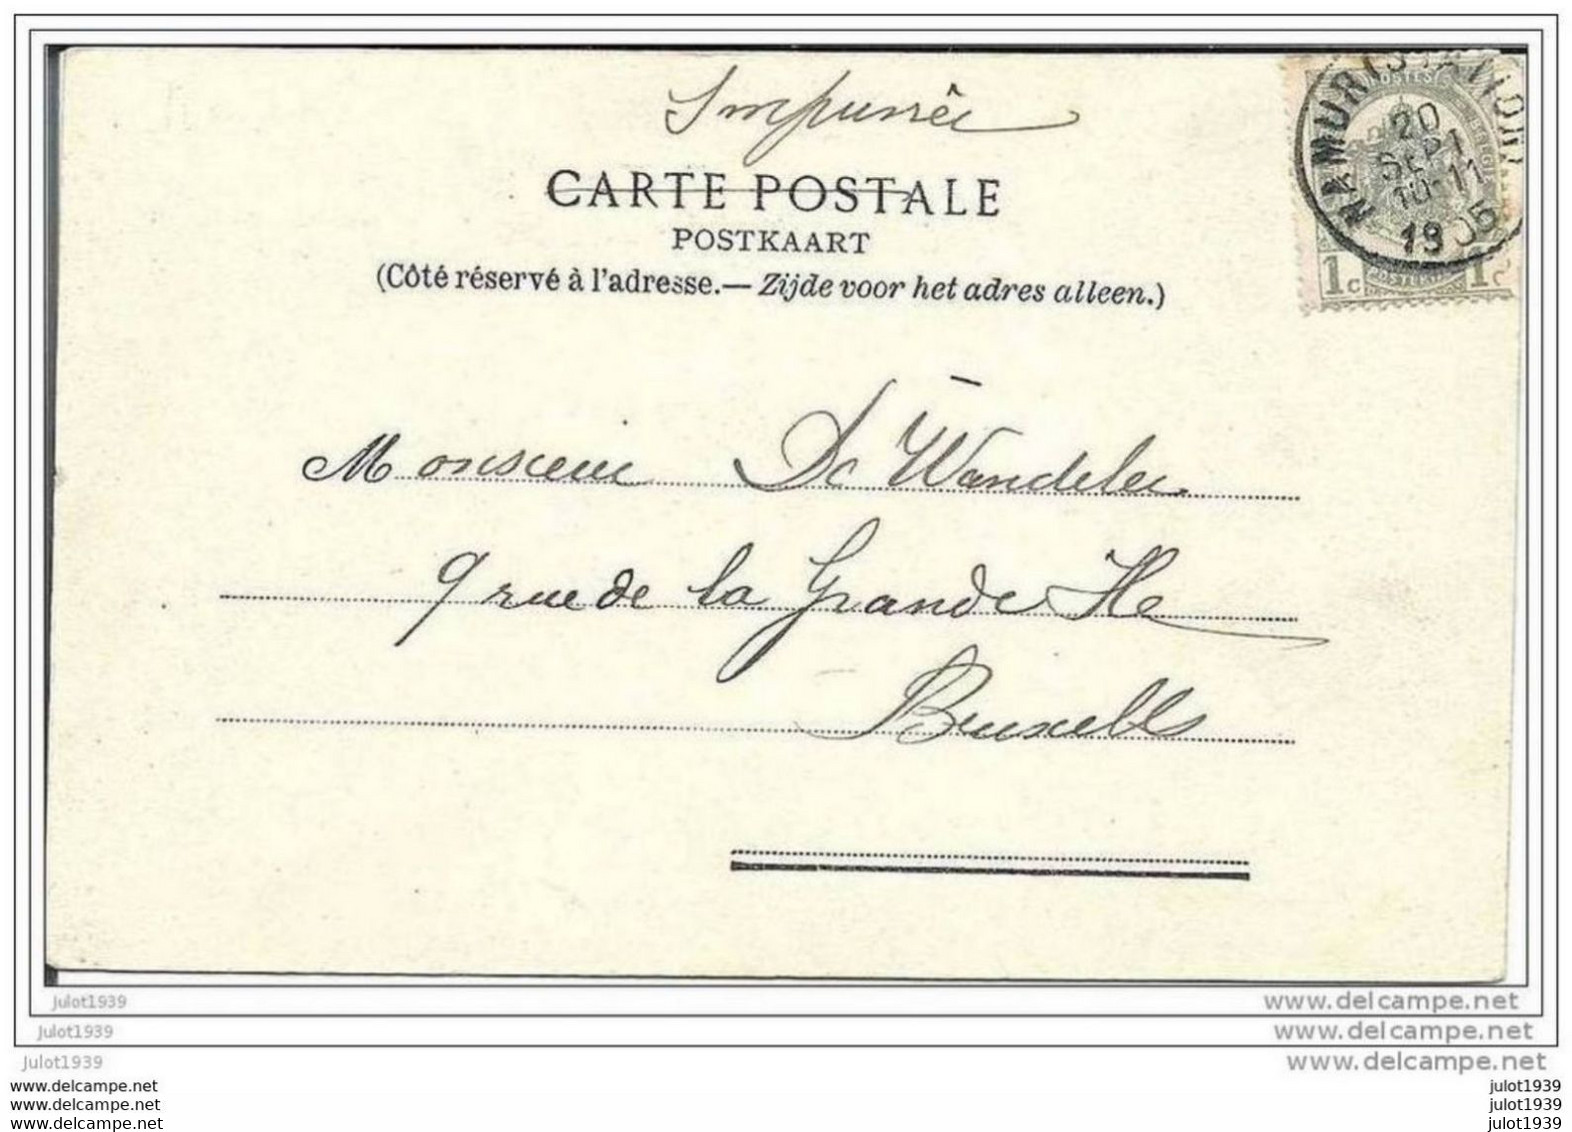 Imprimée
CARTE POSTALE
POSTKAART
(Côté réservé à l'adresse.— Zijde voor het adres alleen.)
NAMUR (STATION)
20
SEPT
10-11
1905
POSTES
BELGIQUE
1c 1c
Monsieur De Wandeleer
9 rue de la Grande Ile
Bruxelles
julot1939
www.delcampe.net
Julot1939
www.delcampe.net
Julot1939
www.delcampe.net
www.delcampe.net
julot1939
www.delcampe.net
julot1939
www.delcampe.net
julot1939